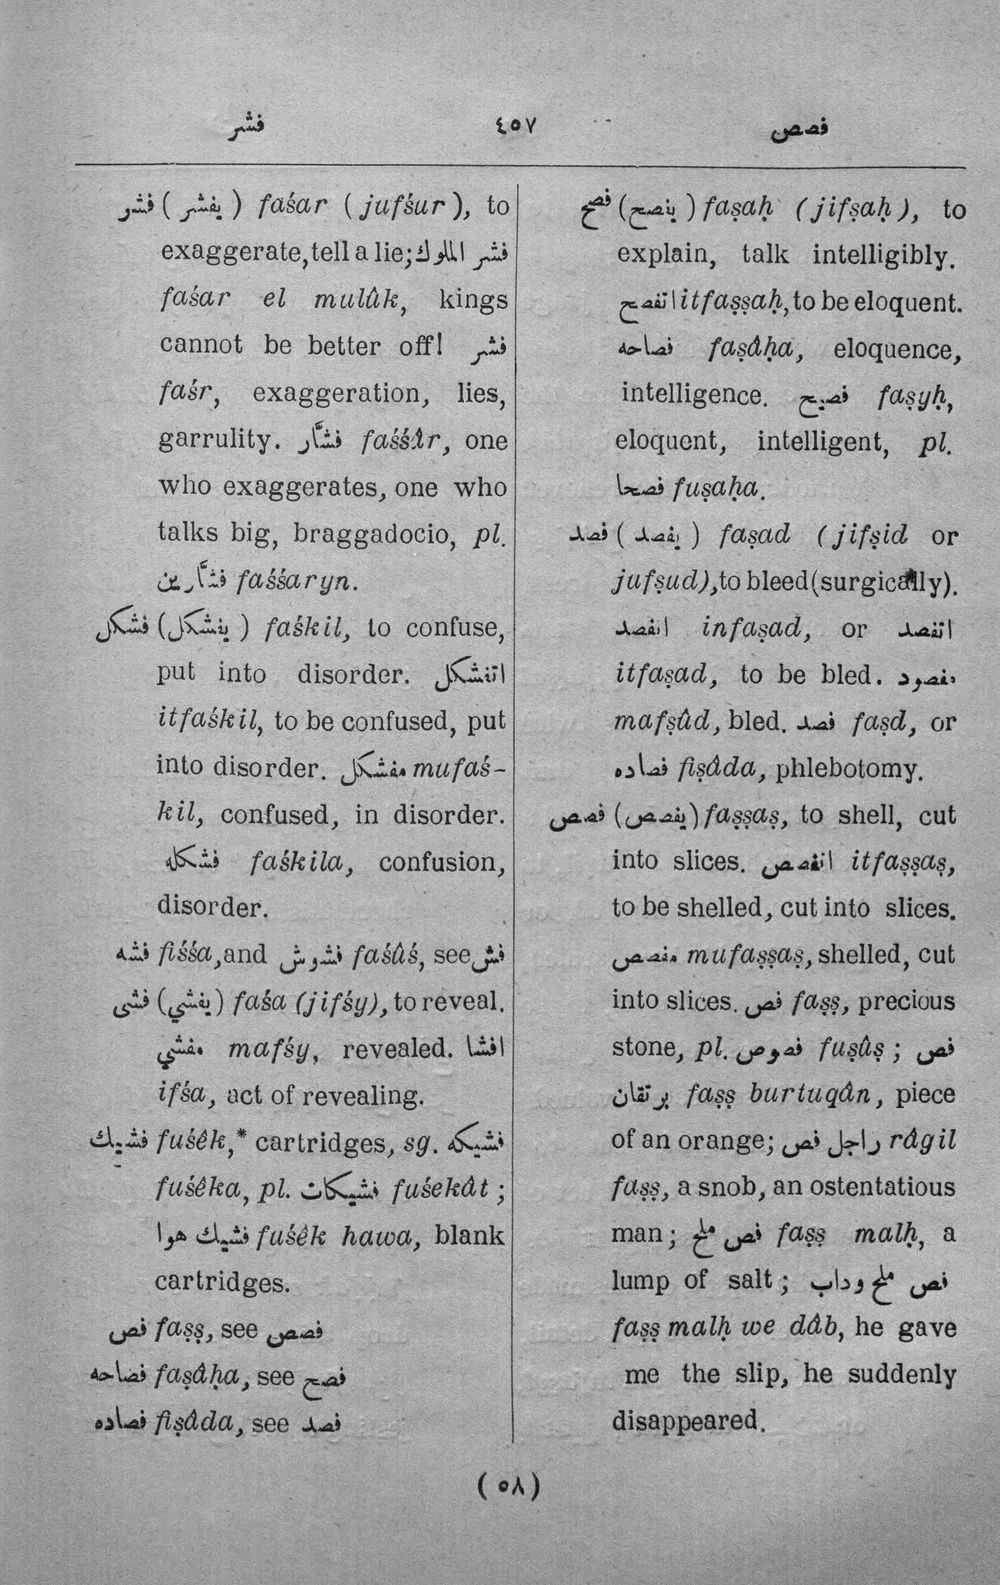 فشر ٤٥٧ فصص
فشر ( يفشر ) faśar ( jufśur ), to
exaggerate, tell a lie; فشر الملوك
faśar el mulûk, kings
cannot be better off! فشر
faśr, exaggeration, lies,
garrulity. فشّار faśśâr, one
who exaggerates, one who
talks big, braggadocio, pl.
فشّارين faśśaryn.
فشكل (يفشكل ) faśkil, to confuse,
put into disorder. اتفشكل
itfaśkil, to be confused, put
into disorder. مفشكل mufaś-
kil, confused, in disorder.
فشكله faśkila, confusion,
disorder.
فشه fiśśa, and فشوش faśûś, see فش
فشى (يفشي ) faśa (jifśy), to reveal.
مفشي mafśy, revealed. افشا
ifśa, act of revealing.
فشيك fuśêk,* cartridges, sg. فشيكه
fuśêka, pl. فشيكات fuśekât ;
فشيك هوا fuśêk hawa, blank
cartridges.
فص faṣṣ, see فصص
فصاحه faṣâḥa, see فصح
فصاده fiṣâda, see فصد
فصح (يفصح ) faṣaḥ (jifṣaḥ ), to
explain, talk intelligibly.
اتفصح itfaṣṣaḥ, to be eloquent.
فصاحه faṣâḥa, eloquence,
intelligence. فصيح faṣyḥ,
eloquent, intelligent, pl.
فصحا fuṣaḥa.
فصد ( يفصد ) faṣad (jifṣid or
jufṣud), to bleed (surgically).
انفصد infaṣad, or اتفصد
itfaṣad, to be bled. مفصود
mafṣûd, bled. فصد faṣd, or
فصاده fiṣâda, phlebotomy.
فصص (يفصص ) faṣṣaṣ, to shell, cut
into slices. اتفصص itfaṣṣaṣ,
to be shelled, cut into slices.
مفصص mufaṣṣaṣ, shelled, cut
into slices. فص faṣṣ, precious
stone, pl. فصوص fuṣûṣ ; فص
برتقان faṣṣ burtuqân, piece
of an orange; راجل فص râgil
faṣṣ, a snob, an ostentatious
man ; فص ملح faṣṣ malḥ, a
lump of salt ; فص ملح وداب
faṣṣ malḥ we dâb, he gave
me the slip, he suddenly
disappeared.
( ٥٨ )